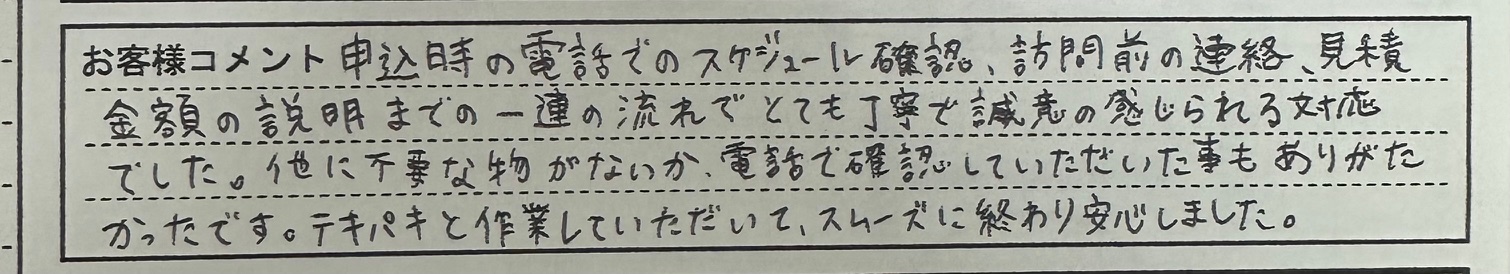 お客様コメント 申込時の電話でのスケジュール確認、訪問前の連絡、見積
金額の説明までの一連の流れでとても丁寧で誠意の感じられる対応
でした。他に不要な物がないか、電話で確認していただいた事もありがた
かったです。テキパキと作業していただいて、スムーズに終わり安心しました。